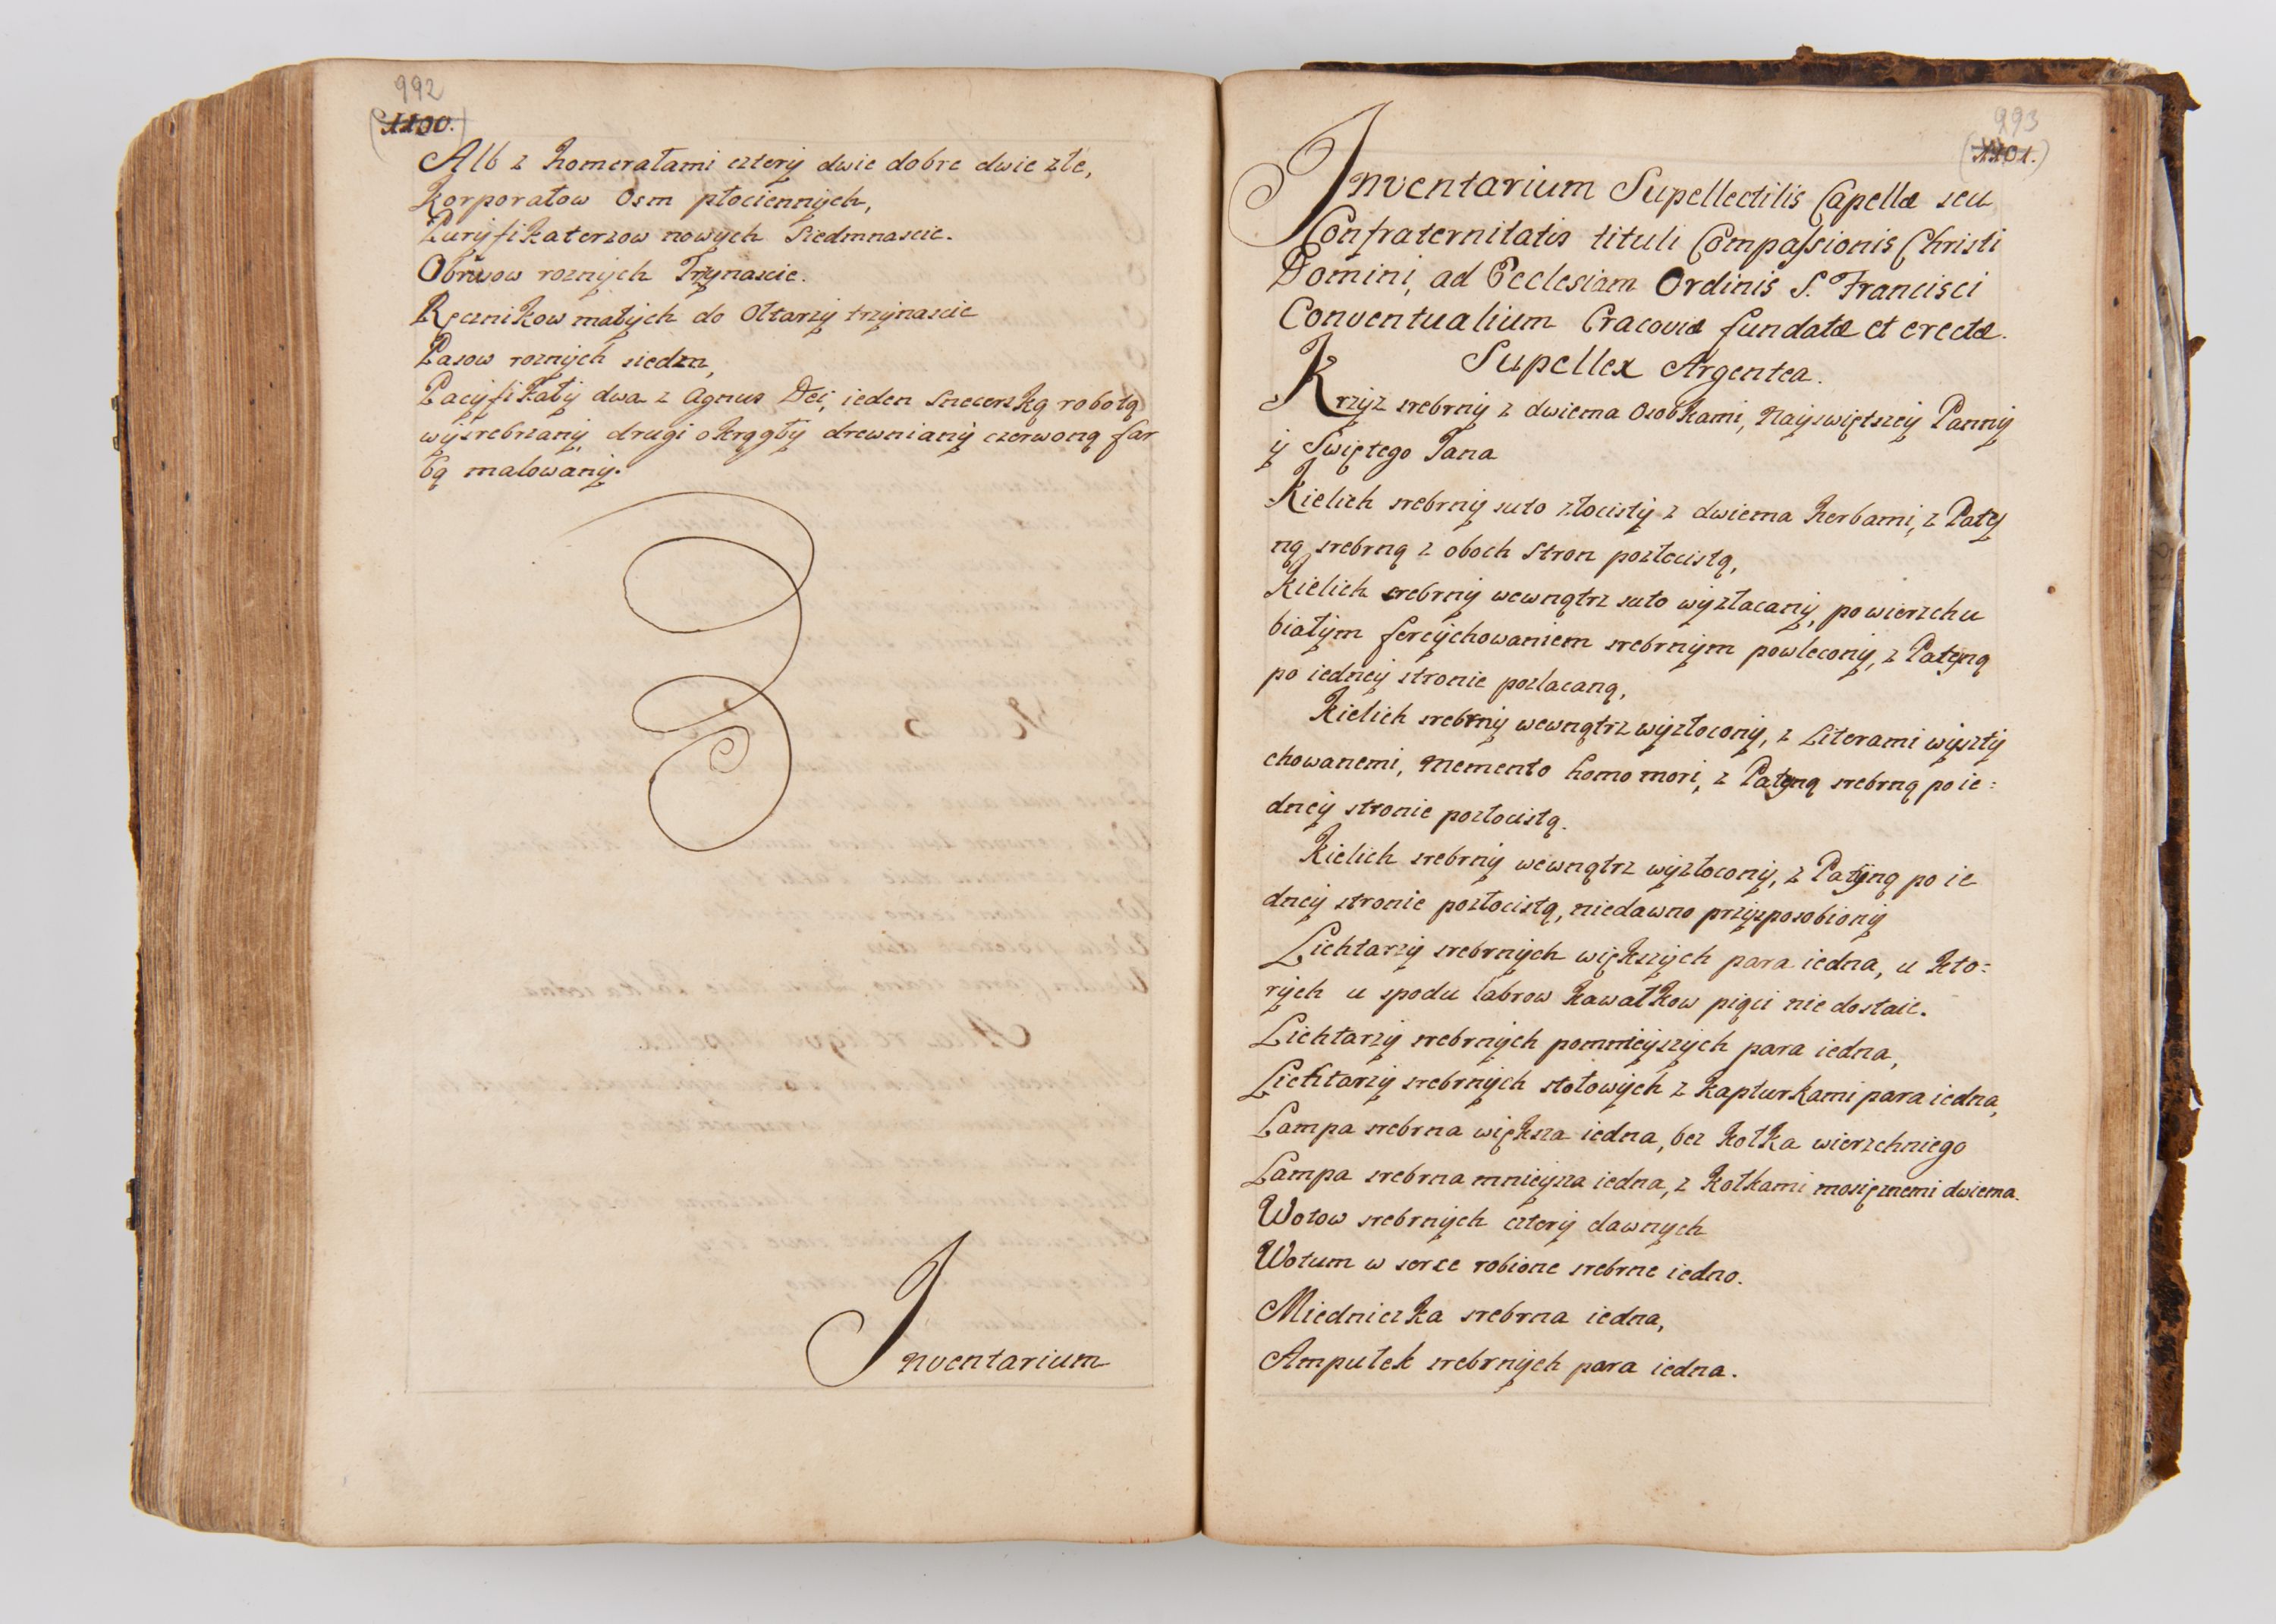 992
(1100.)
Alb z Homerałami cztery dwie dobre dwie złe,
Korporałow Osm płociennych,
Puryfikaterzow nowych Siedmnascie.
Obrusow roznych Trzynascie.
Ręcznikow małych do Ołtarzy trzynascie
Pasow roznych siedm,
Pacyfikały dwa z Agnus Dei, ieden Snecerską robotą
wysrebrzany, drugi okrągły drewniany czerwoną far
bą malowany.
Inventarium
993
(1101.)
Inventarium Supellectilis Capellæ seu
Confraternitatis tituli Compassionis Christi
Domini, ad Ecclesiam Ordinis S. Francisci
Conventualium Cracoviæ fundatæ et erectæ.
Supellex Argentea.
Krzyz srebrny z dwiema Osobkami, Nayswiętszey Panny
y Swiętego Jana
Kielich srebrny suto złocisty z dwiema Herbami, z Paty
ną srebrną z oboch Stron pozłocistą,
Kielich srebrny wewnątrz suto wyzłacany, powierzchu
białym fercychowaniem srebrnym powlecony, z Patyną
po iedney stronie pozlacaną,
Kielich srebrny wewnątrz wyzłocony, z Literami wyszty
chowanemi, Memento homo mori, z Patyną srebrną po ie:
dney stronie pozłocistą.
Kielich srebrny wewnątrz wyzłocony, z Patyną po ie
dney stronie pozłocistą, niedawno przysposobiony
Lichtarzy srebrnych większych para iedna, u kto:
rych u spodu labrow kawałkow pięci nie dostaie.
Lichtarzy srebrnych pomnieyszych para iedna,
Lichtarzy srebrnych stołowych z kapturkami para iedna,
Lampa srebrna większa iedna, bez kołka wierzchniego
Lampa srebrna mnieysza iedna, z kołkami mosięznemi dwiema.
Wotow srebrnych cztery dawnych
Wotum w serce robione srebrne iedno.
Miedniczka srebrna iedna,
Ampułek srebrnych para iedna.